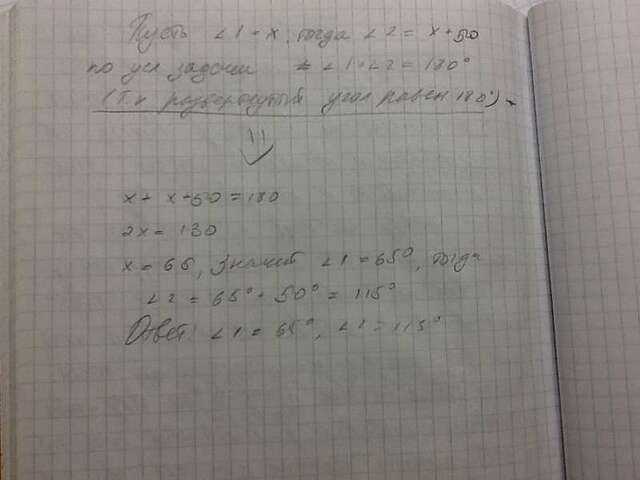 Пусть ∠1 = x, тогда ∠2 = x+50
по усл задачи ∠1+∠2 = 180°
(т.к развернутый угол равен 180°)
x + x+50 = 180
2x = 130
x = 65, значит ∠1 = 65°, тогда
∠2 = 65° + 50° = 115°
Ответ: ∠1 = 65°, ∠2 = 115°